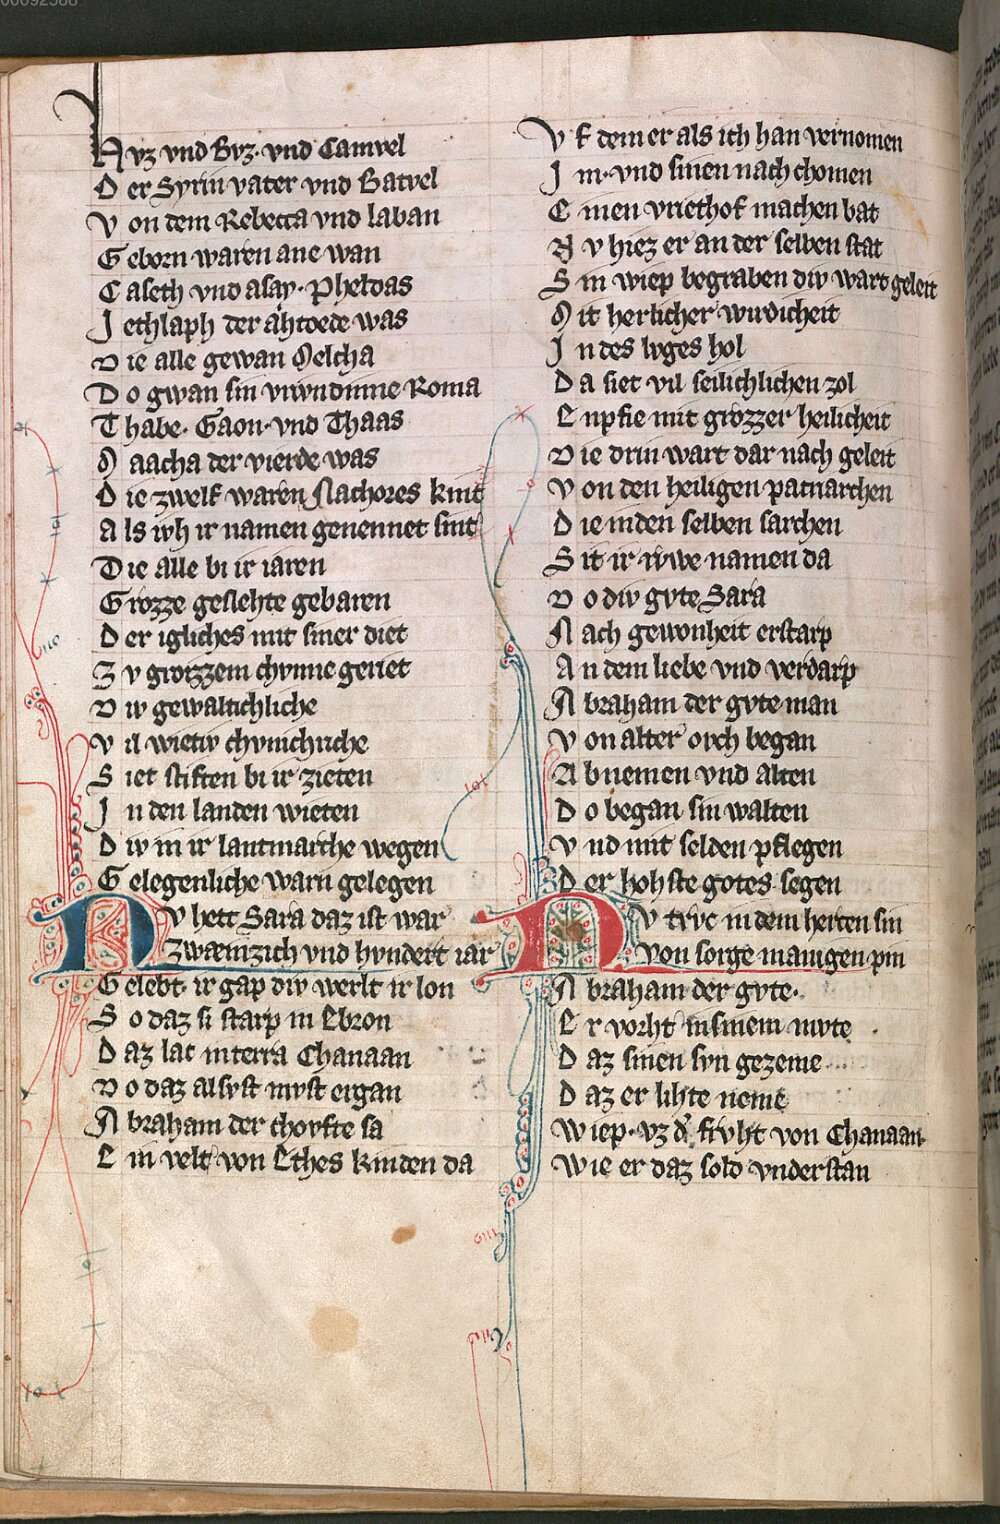 00092588
Hvz vnd Bvz · vnd Camvel
Der Syrin vater vnd Batvel
Von dem Rebecca vnd laban
Geborn waren ane wan
Caseth vnd asay · Pheldas
Jethlaph der ahtoede was
Die alle gewan Melcha
Do gwan sin vrivndinne Roma
Thabe · Gaon · vnd Thaas
Maacha der vierde was
Die zwelf waren Nachores kint
Als ich ir namen genennet sint
Die alle bi ir iaren
Grozze geslehte gebaren
Der igliches mit siner diet
Zv grozzem chvnne geriet
Div gewaltichliche
Vil wietiv chvnichriche
Siet stiften bi ir zieten
Jn den landen wieten
Div in ir lantmarche wegen
Gelegenliche warn gelegen
Nv hett Sara daz ist war
Zwæinzich vnd hvndert iar
Gelebt · ir gap div werlt ir lon
So daz si starp in Ebron
Daz lac in terra Chanaan
Do daz alsvst mvst ergan
Abraham der chovfte sa
Ein velt von Ethes kinden da
Vf dem er als ich han vernomen
Jm · vnd sinen nach chomen
Einen vriethof machen bat
Nv hiez er an der selben stat
Sin wiep begraben div wart geleit
Mit herlicher wirdicheit
Jn des lvges hol
Da siet vil seilichlichen zol
Enpfie mit grozzer heilicheit
Die drin wart dar nach geleit
Von den heiligen patriarchen
Die in den selben sarchen
Sit ir rvwe namen da
Do div gvte Sara
Nach gewonheit erstarp
An dem liebe vnd verdarp
Abraham der gvte man
Von alter ovch began
Abnemen vnd alten
Do began sin walten
Vnd mit selden pflegen
Der hohste gotes segen
Nv trvc in dem herten sin
Von sorge manigen pin
Abraham der gvte ·
Er vorht in sinem mvte
Daz sinen svn gezeme
Daz er lihte neme
Wiep · vz der frvht von Chanaan
Wie er daz sold vnderstan